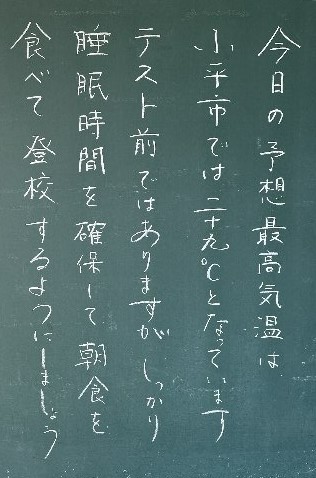 今日の予想最高気温は
小平市では二十九℃となっています
テスト前ではありますがしっかり
睡眠時間を確保して朝食を
食べて登校するようにしましょう